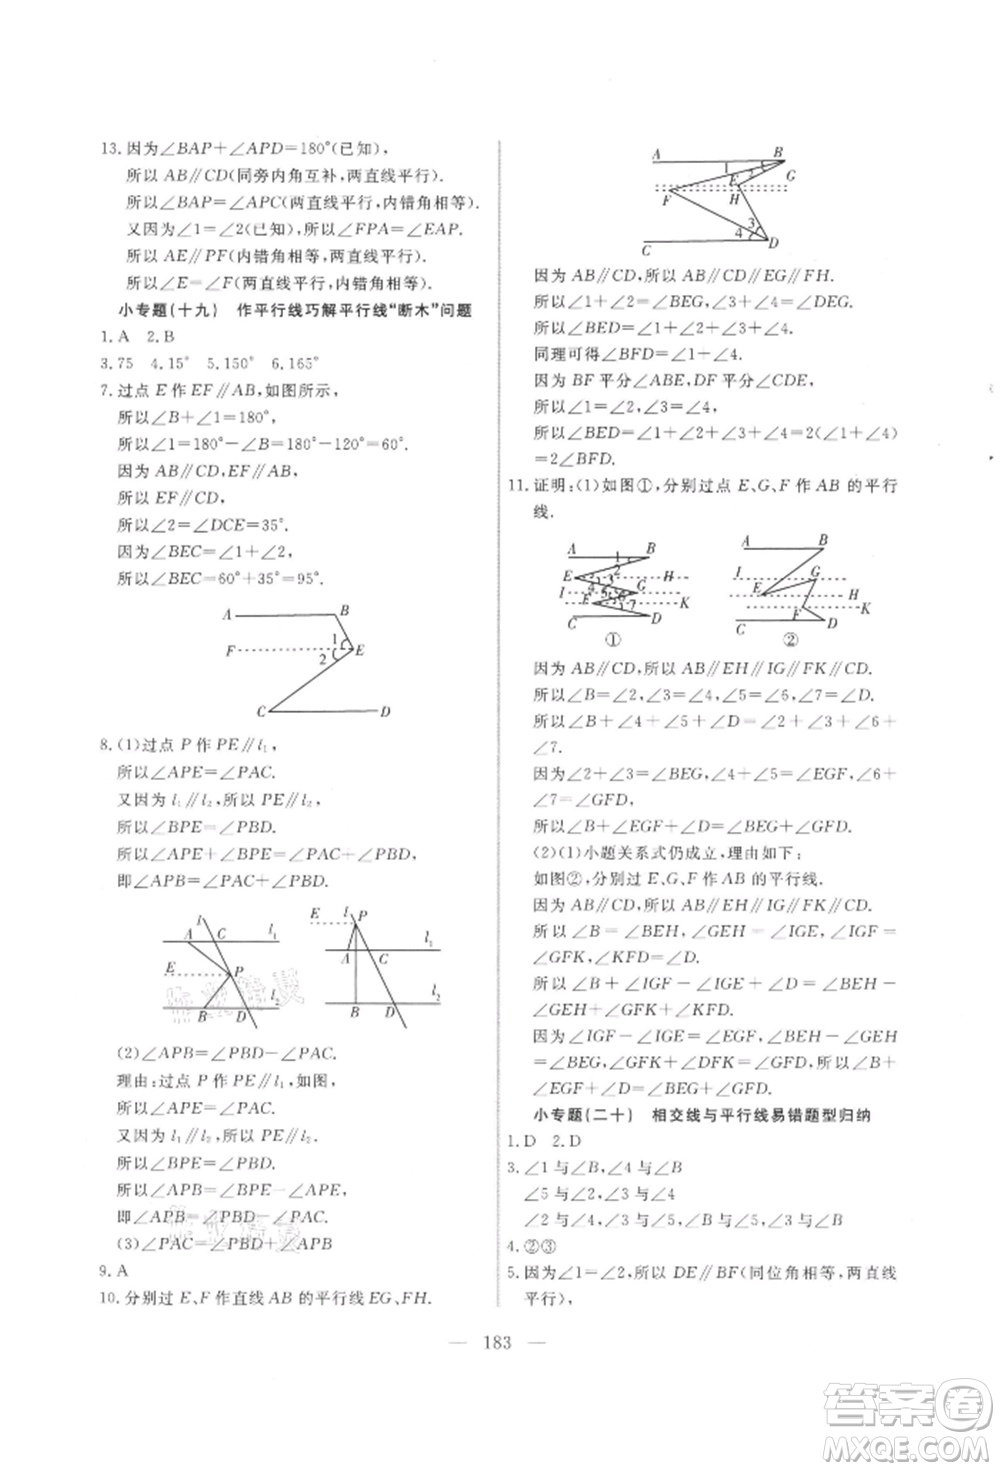 13. 因为∠BAP+∠APD=180°(已知),
所以 AB∥CD(同旁内角互补,两直线平行).
所以∠BAP=∠APC(两直线平行,内错角相等).
又因为∠1=∠2(已知),所以∠FPA=∠EAP.
所以 AE∥PF(内错角相等,两直线平行).
所以∠E=∠F(两直线平行,内错角相等).
小专题(十九) 作平行线巧解平行线“断木”问题
1. A 2. B
3. 75 4. 15° 5. 150° 6. 165°
7. 过点 E 作 EF∥AB,如图所示,
所以∠B+∠1=180°,
所以∠1=180°-∠B=180°-120°=60°.
因为 AB∥CD,EF∥AB,
所以 EF∥CD,
所以∠2=∠DCE=35°.
因为∠BEC=∠1+∠2,
所以∠BEC=60°+35°=95°.
A B
F 1 2 E
C D
8. (1)过点 P 作 PE∥l₁,
所以∠APE=∠PAC.
又因为 l₁∥l₂,所以 PE∥l₂,
所以∠BPE=∠PBD.
所以∠APE+∠BPE=∠PAC+∠PBD.
即∠APB=∠PAC+∠PBD.
l A C l₁
E P
B D l₂
E l P
A C l₁
B D l₂
(2)∠APB=∠PBD-∠PAC.
理由:过点 P 作 PE∥l₁,如图,
所以∠APE=∠PAC.
又因为 l₁∥l₂,所以 PE∥l₂,
所以∠BPE=∠PBD.
所以∠APB=∠BPE-∠APE,
即∠APB=∠PBD-∠PAC.
(3)∠PAC=∠PBD+∠APB
9. A
10. 分别过 E、F 作直线 AB 的平行线 EG、FH.
A B
1 2 E G
F H
3 4
C D
因为 AB∥CD,所以 AB∥CD∥EG∥FH.
所以∠1+∠2=∠BEG,∠3+∠4=∠DEG.
所以∠BED=∠1+∠2+∠3+∠4.
同理可得∠BFD=∠1+∠4.
因为 BF 平分∠ABE,DF 平分∠CDE,
所以∠1=∠2,∠3=∠4,
所以∠BED=∠1+∠2+∠3+∠4=2(∠1+∠4)
=2∠BFD.
11. 证明:(1)如图①,分别过点 E、G、F 作 AB 的平行
线.
A 1 B
2
E 3 H
I 4 5 6 G
F 7 K
C D
①
A B
I G
E H
F K
C D
②
因为 AB∥CD,所以 AB∥EH∥IG∥FK∥CD.
所以∠B=∠2,∠3=∠4,∠5=∠6,∠7=∠D,
所以∠B+∠4+∠5+∠D=∠2+∠3+∠6+
∠7.
因为∠2+∠3=∠BEG,∠4+∠5=∠EGF,∠6
+∠7=∠GFD,
所以∠B+∠EGF+∠D=∠BEG+∠GFD.
(2)(1)小题关系式仍成立,理由如下:
如图②,分别过 E、G、F 作 AB 的平行线.
因为 AB∥CD,所以 AB∥EH∥IG∥FK∥CD.
所以∠B=∠BEH,∠GEH=∠IGE,∠IGF=
∠GFK,∠KFD=∠D.
所以∠B+∠IGF+∠GEH+∠KFD=∠BEH+
∠GFK+∠IGE+∠D.
所以∠B+∠IGF-∠IGE+∠D=∠BEH-
∠GEH+∠GFK+∠KFD.
因为∠IGF-∠IGE=∠EGF,∠BEH-∠GEH
=∠BEG,∠GFK+∠DFK=∠GFD,所以∠B+
∠EGF+∠D=∠BEG+∠GFD.
小专题(二十) 相交线与平行线易错题型归纳
1. D 2. D
3. ∠1与∠B、∠4与∠B
∠5与∠2、∠3与∠4
∠2与∠4、∠5与∠3、∠5与∠B、∠3与∠B
4. ②③
5. 因为∠1=∠2,所以 DE∥BF(同位角相等,两直线
平行),
— 183 —
答案卷
MXQE.COM